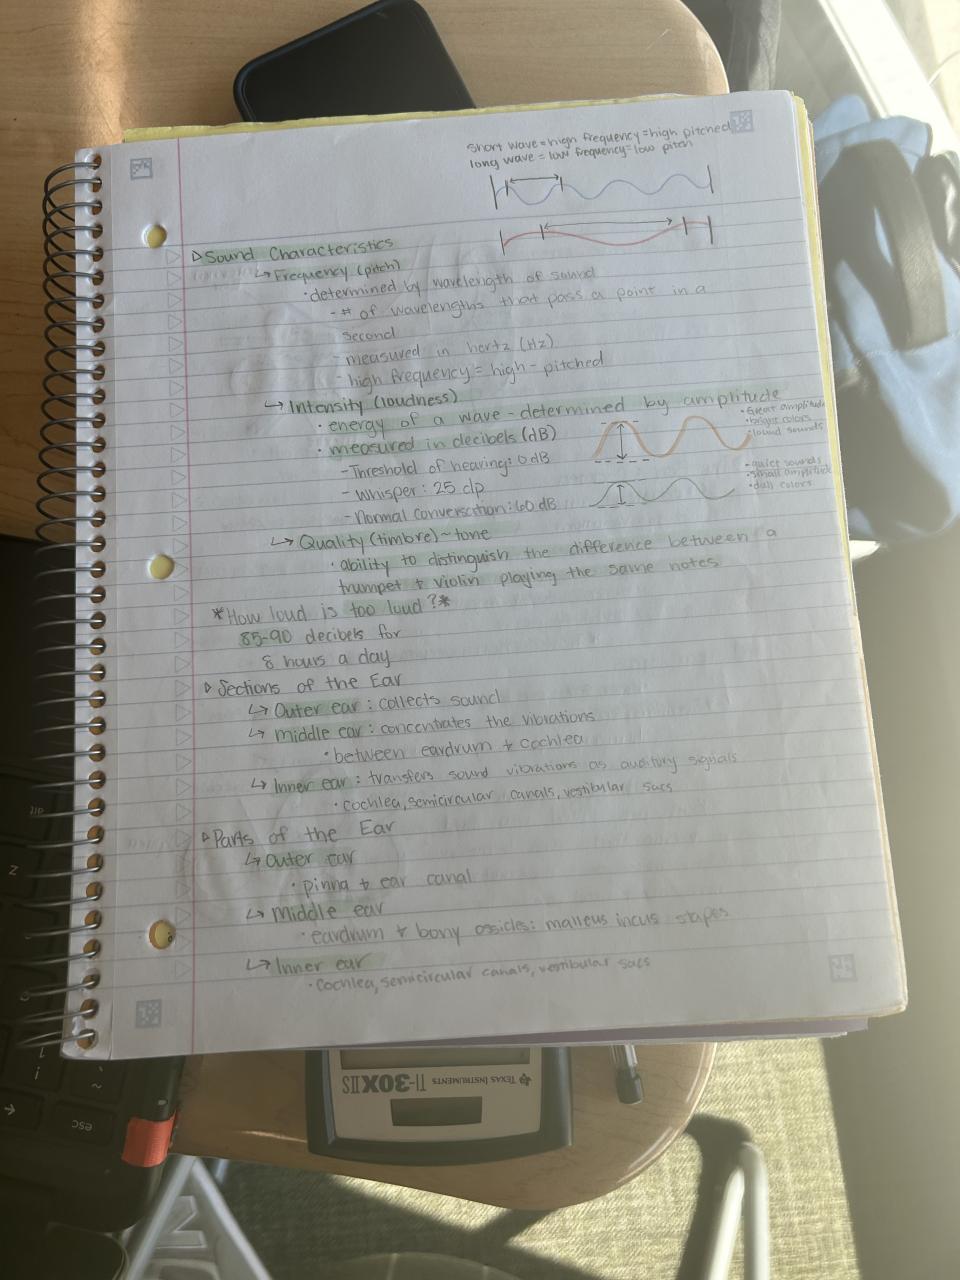 short wave = high frequency = high pitched
long wave = low frequency = low pitch
Sound Characteristics
↳ Frequency (pitch)
• determined by wavelength of sound
- # of wavelengths that pass a point in a
second
- measured in hertz (Hz)
- high frequency = high - pitched
↳ Intensity (loudness)
• energy of a wave - determined by amplitude
• measured in decibels (dB)
- Threshold of hearing: 0 dB
- Whisper: 25 dp
- Normal conversation: 60 dB
• Great amplitude
• bright colors
• lound sounds
• quiet sounds
• small amplitude
• dull colors
↳ Quality (timbre) ~ tone
• ability to distinguish the difference between a
trumpet + violin playing the same notes
*How loud is too loud?*
85-90 decibels for
8 hours a day
Sections of the Ear
↳ Outer ear: collects sound
↳ middle ear: concentrates the vibrations
• between eardrum + cochlea
↳ Inner ear: transfers sound vibrations as auditory signals
• cochlea, semicircular canals, vestibular sacs
Parts of the Ear
↳ Outer ear
• pinna + ear canal
↳ Middle ear
• eardrum + bony ossicles: malleus incus stapes
↳ Inner ear
• cochlea, semicircular canals, vestibular sacs
TEXAS INSTRUMENTS TI-30X IIS
alt
Z
esc